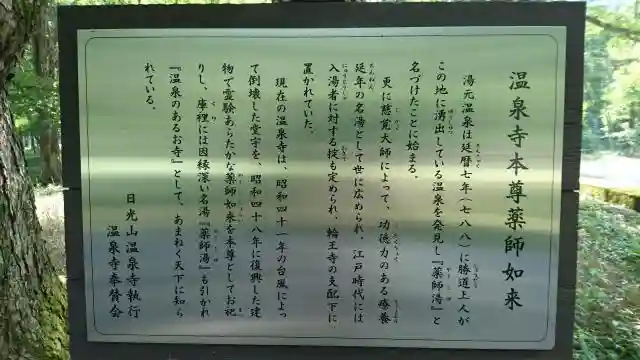 温泉寺本尊薬師如来
湯元温泉は延暦七年（七八八）に勝道上人が
この地に湧出している温泉を発見し『薬師湯』と
名づけたことに始まる。
更に慈覚大師によって、功徳力のある療養
延年の名湯として世に広められ、江戸時代には
入湯者に対する掟も定められ、輪王寺の支配下に
置かれていた。
現在の温泉寺は、昭和四十一年の台風によっ
て倒壊した堂宇を、昭和四十八年に復興した建
物で霊験あらたかな薬師如来を本尊としてお祀
りし、庫裡には因縁深い名湯『薬師湯』も引かれ
『温泉のあるお寺』として、あまねく天下に知ら
れている。
日光山温泉寺執行
温泉寺奉賛会